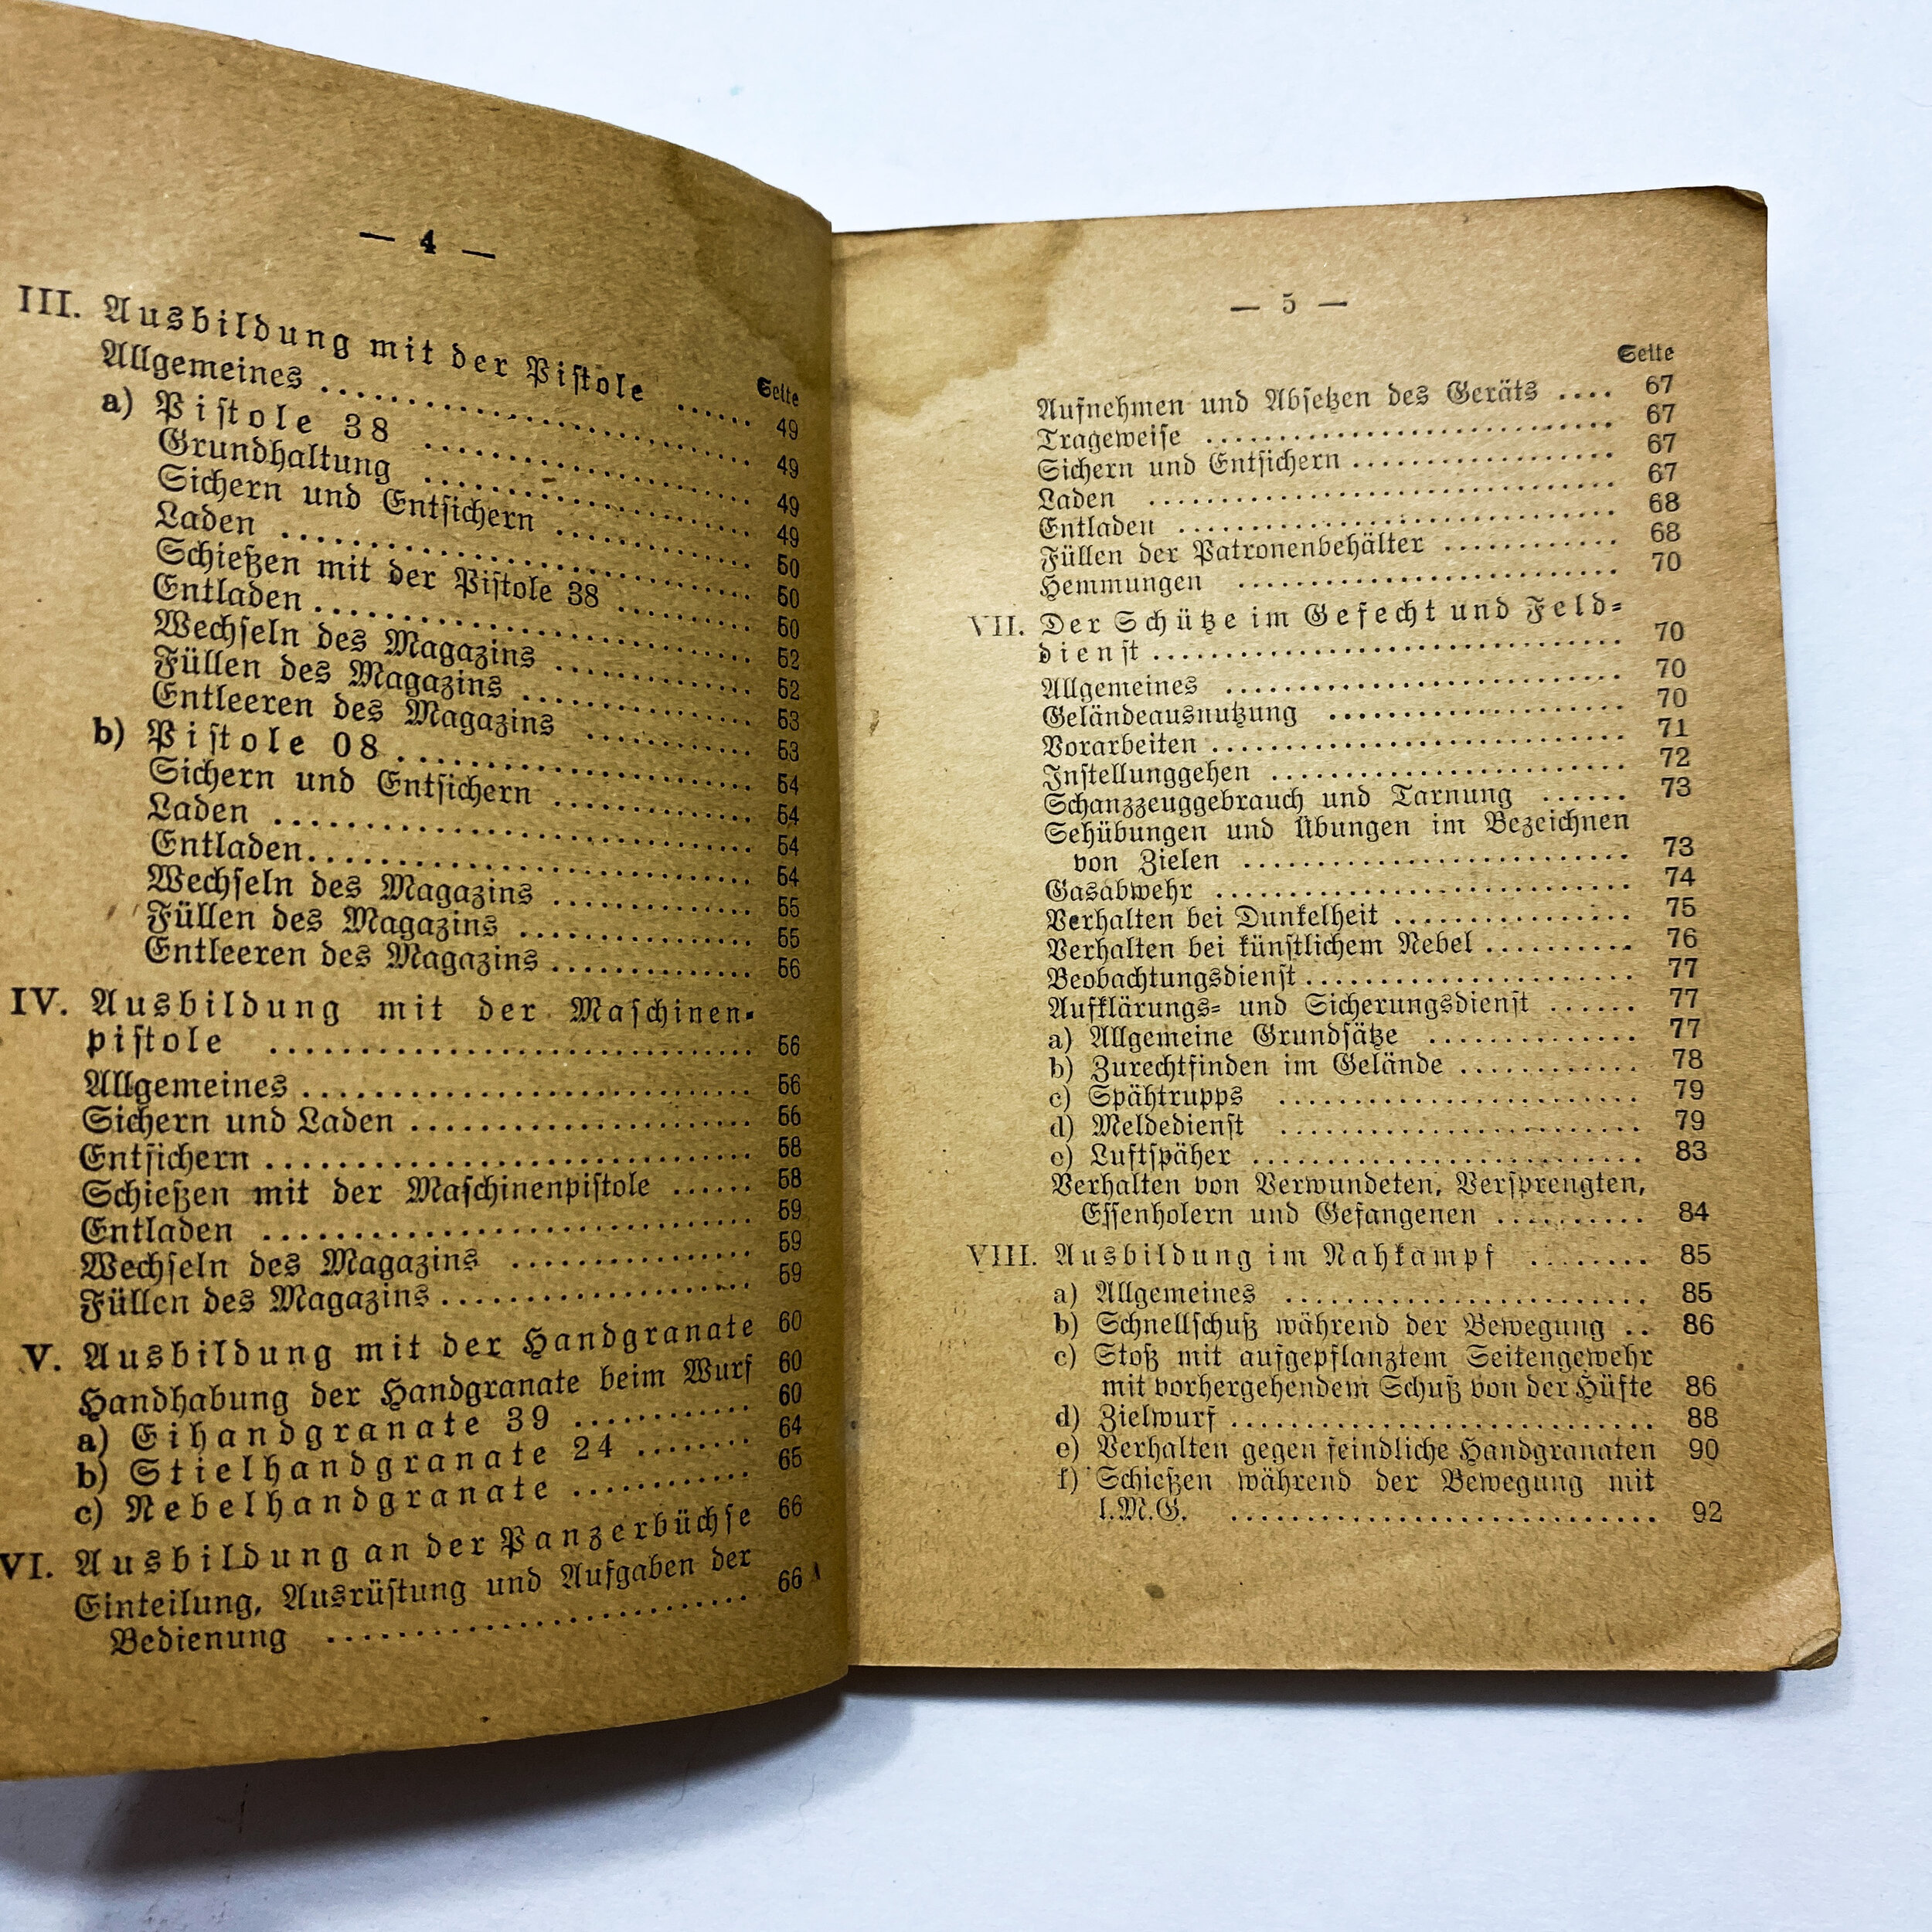 — 4 —
Seite
III. Ausbildung mit der Pistole ...... 49
Allgemeines ........................ 49
a) Pistole 38 ...................... 49
Grundhaltung ...................... 49
Sichern und Entsichern ............. 50
Laden ............................. 50
Schießen mit der Pistole 38 ......... 50
Entladen ........................... 52
Wechseln des Magazins ............. 52
Füllen des Magazins ............... 53
Entleeren des Magazins ............ 53
b) Pistole 08 ...................... 54
Sichern und Entsichern ............. 54
Laden ............................. 54
Entladen ........................... 54
Wechseln des Magazins ............. 55
Füllen des Magazins ............... 55
Entleeren des Magazins ............ 56
IV. Ausbildung mit der Maschinen-
pistole ............................ 56
Allgemeines ........................ 56
Sichern und Laden .................. 56
Entsichern .......................... 58
Schießen mit der Maschinenpistole ...... 58
Entladen ........................... 59
Wechseln des Magazins ............. 59
Füllen des Magazins ................ 59
V. Ausbildung mit der Handgranate 60
Handhabung der Handgranate beim Wurf 60
a) Eihandgranate 39 ............ 60
b) Stielhandgranate 24 ........ 64
c) Nebelhandgranate .......... 65
VI. Ausbildung an der Panzerbüchse 66
Einteilung, Ausrüstung und Aufgaben der
Bedienung ........................ 66
— 5 —
Seite
Aufnehmen und Absetzen des Geräts .... 67
Trageweise ........................ 67
Sichern und Entsichern .............. 67
Laden ............................. 67
Entladen ........................... 68
Füllen der Patronenbehälter ............ 68
Hemmungen ........................ 70
VII. Der Schütze im Gefecht und Feld-
dienst ............................. 70
Allgemeines ........................ 70
Geländeausnutzung .................. 70
Vorarbeiten ........................ 71
Instellunggehen ..................... 72
Schanzzeuggebrauch und Tarnung ...... 73
Sehübungen und Übungen im Bezeichnen
von Zielen ........................ 73
Gasabwehr ......................... 74
Verhalten bei Dunkelheit .............. 75
Verhalten bei künstlichem Nebel .......... 76
Beobachtungsdienst ................... 77
Aufklärungs- und Sicherungsdienst ...... 77
a) Allgemeine Grundsätze ............ 77
b) Zurechtfinden im Gelände .......... 78
c) Spähtrupps ...................... 79
d) Meldedienst ..................... 79
e) Luftspäher ...................... 83
Verhalten von Verwundeten, Versprengten,
Essenholern und Gefangenen .......... 84
VIII. Ausbildung im Nahkampf ........ 85
a) Allgemeines ..................... 85
b) Schnellschuß während der Bewegung .. 86
c) Stoß mit aufgepflanztem Seitengewehr
mit vorhergehendem Schuß von der Hüfte 86
d) Zielwurf ......................... 88
e) Verhalten gegen feindliche Handgranaten 90
f) Schießen während der Bewegung mit
l.M.G. ........................... 92